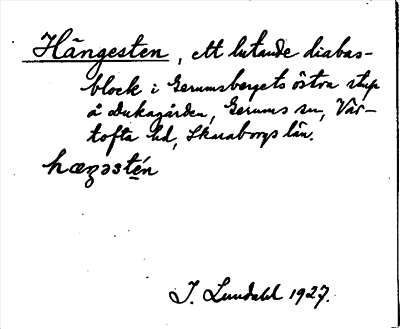 Hängesten, ett lutande diabas-
block i Gerumsbergets östra stup
å Dukagården, Gerums sn, Vår-
tofta hd, Skaraborgs län.
hæŋəstén
I. Lundahl 1927.